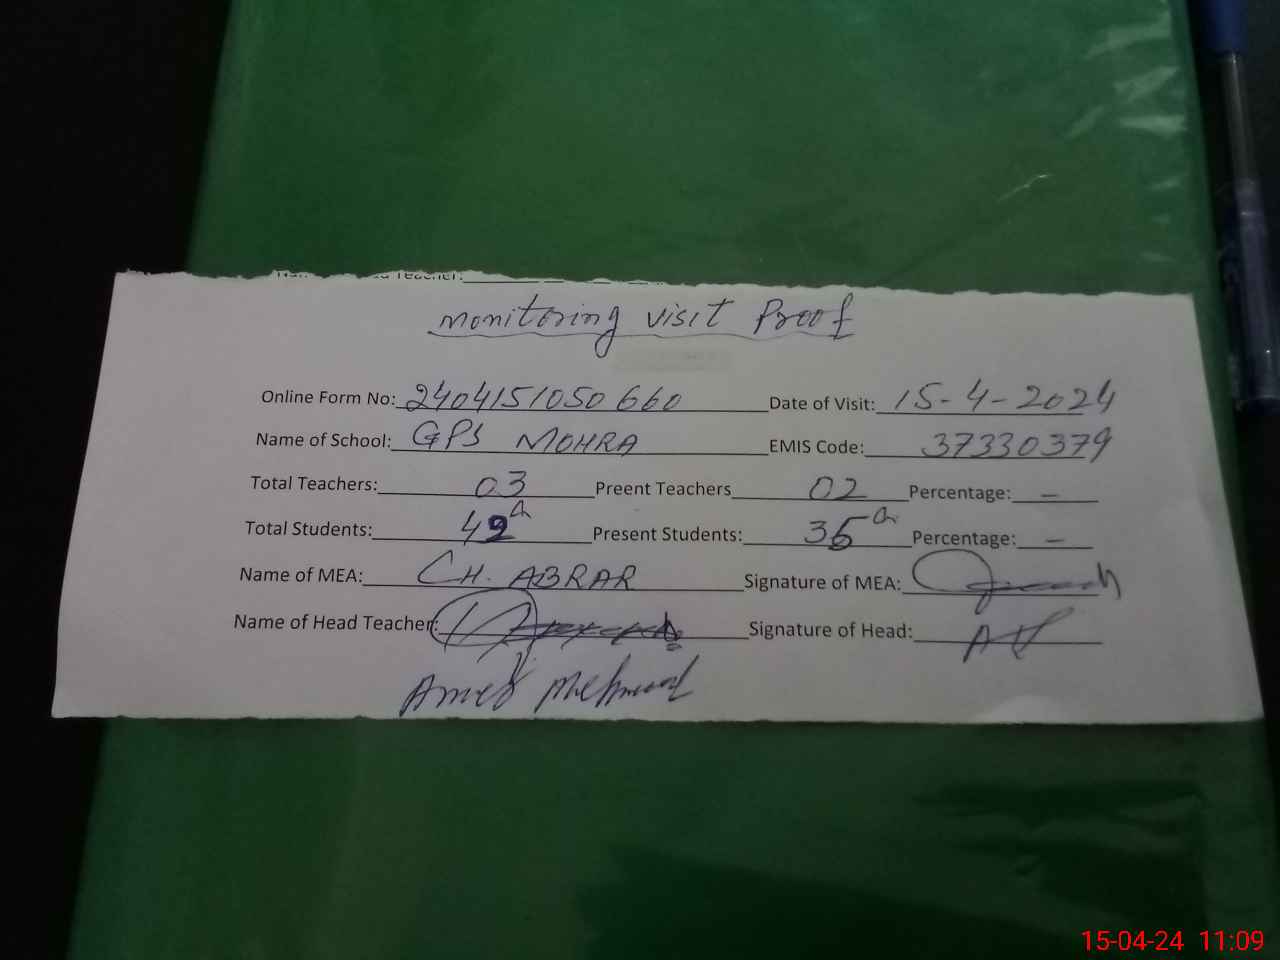 monitoring visit Proof
Online Form No: 2404151050660 Date of Visit: 15-4-2024
Name of School: GPS MOHRA EMIS Code: 37330379
Total Teachers: 03 Preent Teachers 02 Percentage: -
Total Students: 42 Present Students: 36 Percentage: -
Name of MEA: CH. ABRAR Signature of MEA:
Name of Head Teacher: Signature of Head:
Mehmood
15-04-24 11:09